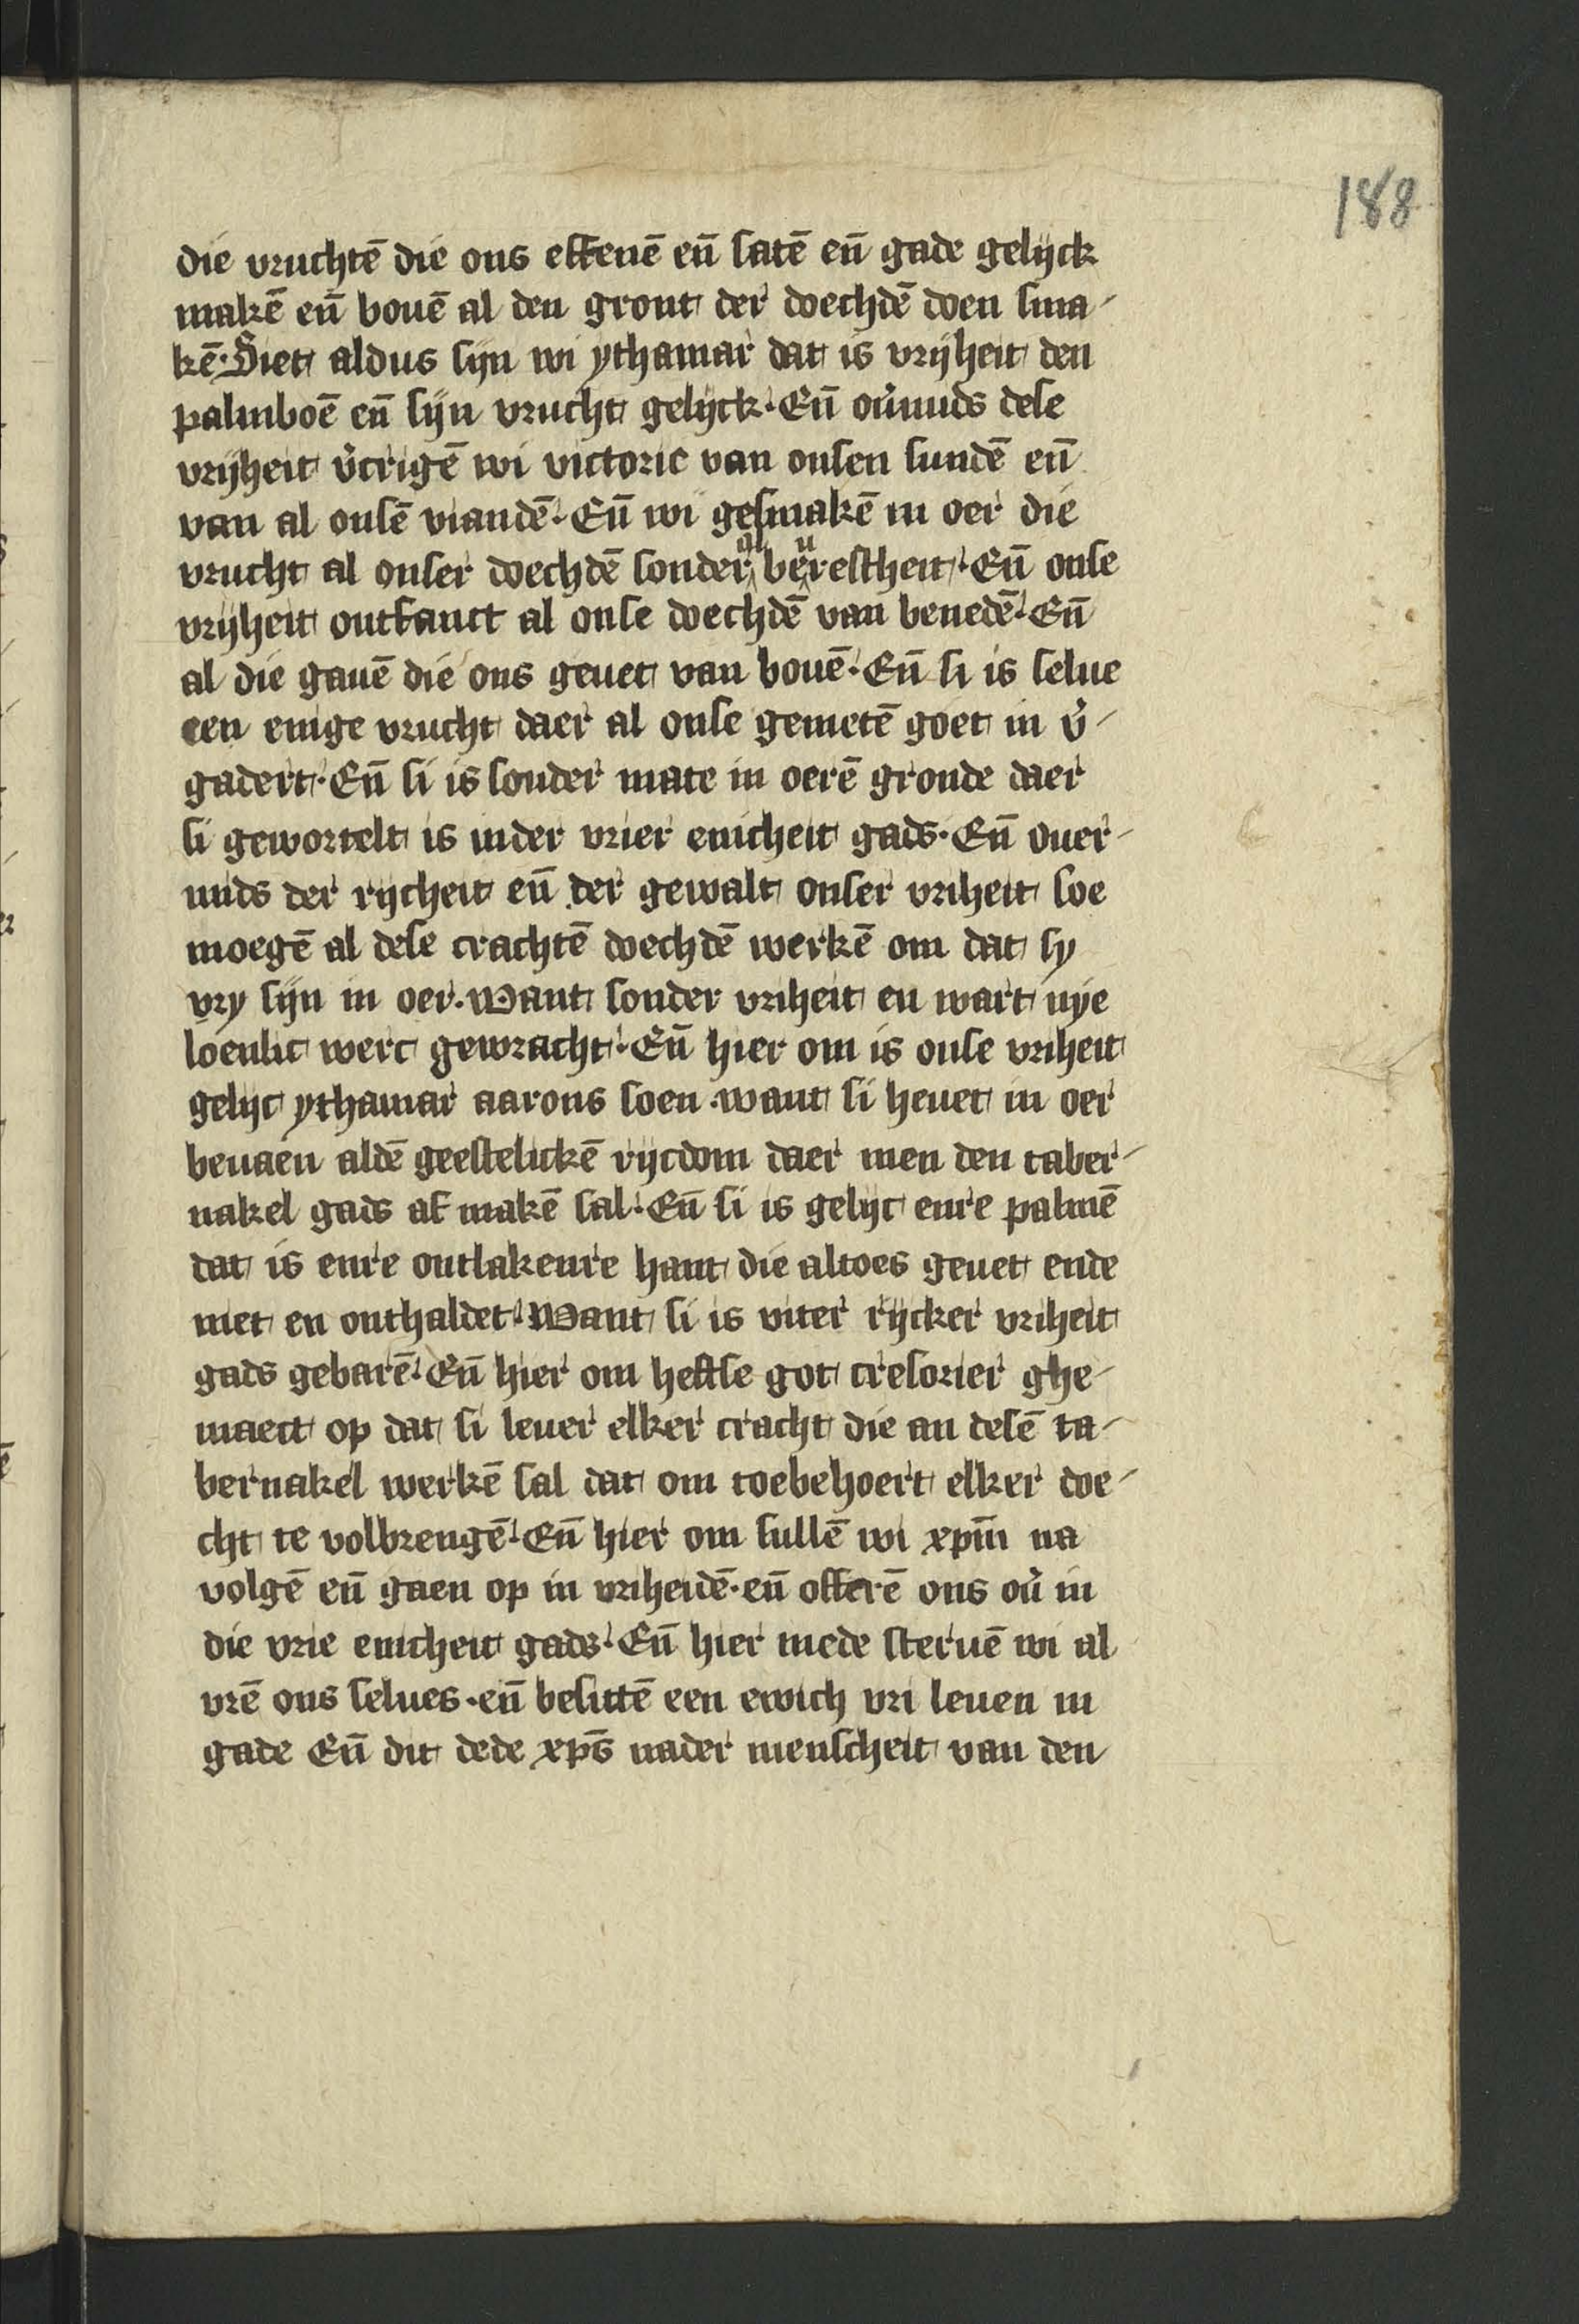 188
die vruchtē die ons effenē en̄ satē en̄ gade gelijck
makē en̄ bouē al den gront der doechdē doen sma-
kē. Siet aldus sijn wi ythamar dat is vrijheit den
palmboē en̄ sijn vrucht gelijck. En̄ ou̓mids dese
vrijheit v̓crigē wi victorie van onsen sundē en̄
van al onsē viandē. En̄ wi gesmakē in oer die
vrucht al onser doechdē sonder al berestheit. En̄ onse
vrijheit ontfanct al onse doechdē van benedē. En̄
al die gauē die ons geuet van bouē. En̄ si is selue
een enige vrucht daer al onse gemetē goet in v̓-
gadert. En̄ si is sonder mate in oerē gronde daer
si gewortelt is inder vrier enicheit gads. En̄ ouer-
mids der rijcheit en̄ der gewalt onser vriheit soe
moegē al dese crachtē doechdē werkē om dat sy
vry sijn in oer. Want sonder vriheit en wart nye
loenlic werc gewracht. En̄ hier om is onse vriheit
gelijc ythamar aarons soen. want si heuet in oer
beuaen aldē geestelickē rijcdom daer men den taber-
nakel gads af makē sal. En̄ si is gelijc enre palmē
dat is enre ontlakenre hant die altoes geuet ende
niet en onthaldet. Want si is uiter rijcker vriheit
gads gebarē. En̄ hier om heftse got tresorier ghe-
maect op dat si leuer elker cracht die an desē ta-
bernakel werkē sal dat om toebehoert elker doe-
cht te volbrengē. En̄ hier om sullē wi xpm̄ na
volgē en̄ gaen op in vriheidē. en̄ offerē ons ou̓ in
die vrie enicheit gads. En̄ hier mede steruē wi al
vrē ons selues. en̄ besittē een ewich vri leuen in
gade En̄ dit dede xps̄ nader menscheit van den